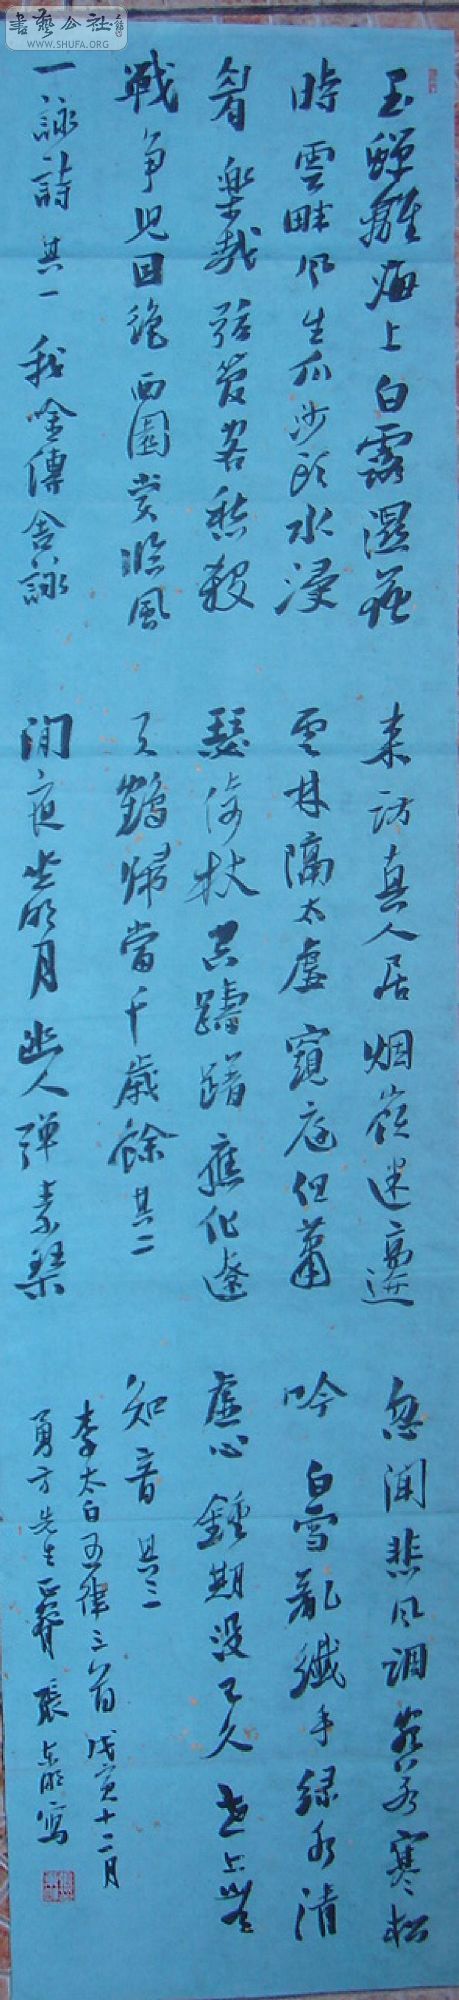 玉蟾離海上白露濕花
時雲畔風生爪沙頭水浸
眉樂哉弦管客愁殺
戰爭兒因絕西園賞臨風
一詠詩其一我吟傳舍詠
來訪真人居烟嶺迷高迹
雲林隔太虛窺庭但蕭
瑟倚杖空躊躇應化遼
天鶴歸當千歲餘其二
閒夜坐明月幽人彈素琴
忽聞悲風調宛若寒松
吟白雪亂纖手綠水清
虛心鍾期沒已久世上無
知音其三
李太白五律三首戊寅十二月
勇方先生正張寫
書藝公社
WWW.SHUFA.ORG